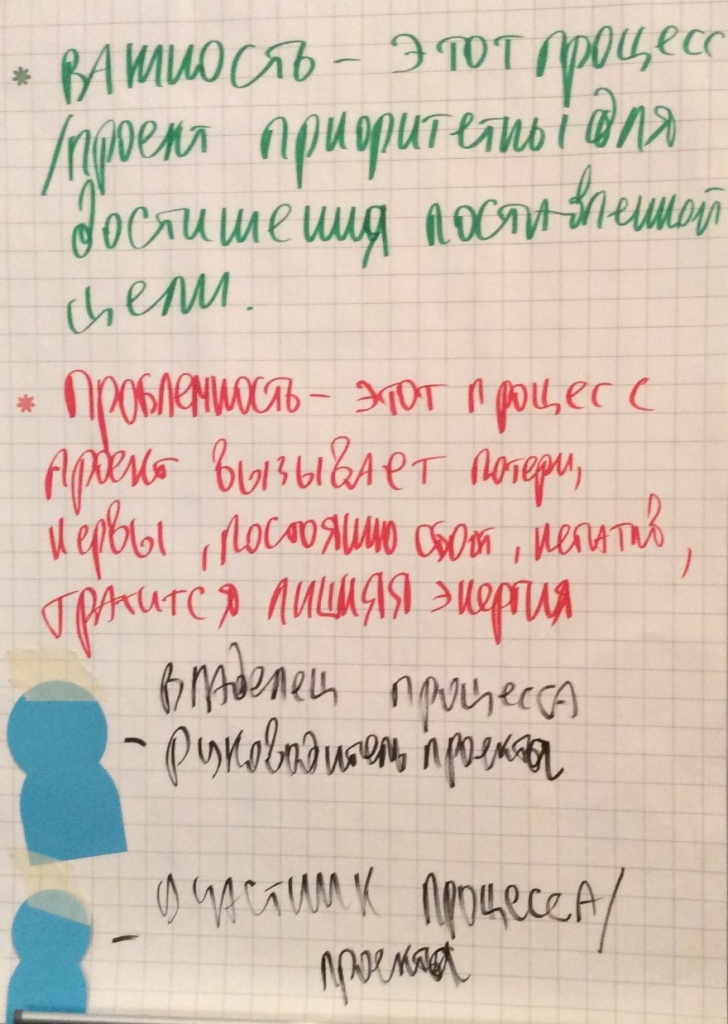 * ВАЖНОСТЬ – ЭТОТ процесс
/проект приоритетны для
достижения поставленной
цели.
* ПРОБЛЕМНОСТЬ – ЭТОТ процесс
проект ВЫЗЫВАЕТ потери,
нервы, постоянно сбои, негатив,
тратится лишняя энергия
Владелец процесса
- Руководитель проекта
- УЧАСТНИК процесса/
проекта